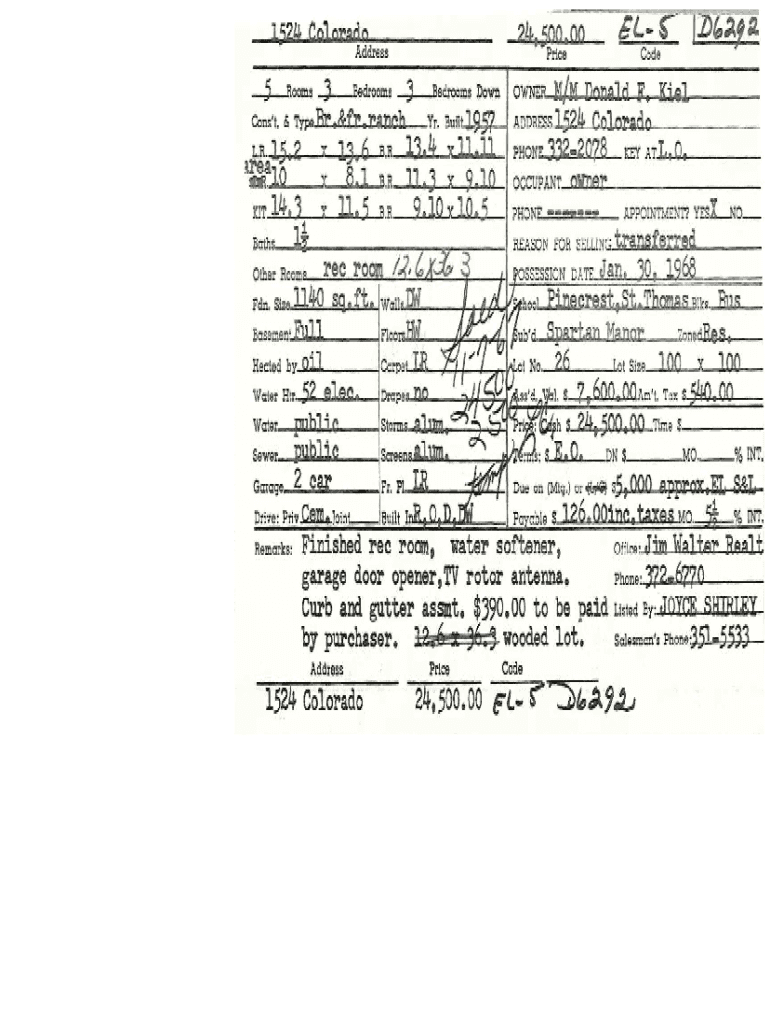 1524 Colorado 24,500.00 EL-5 D6292
Address Price Code
5 Rooms 3 Bedrooms 3 Bedrooms Down OWNER M/M Donald F. Kiel
Cons't. & Type Br.&fr.ranch Yr. Built 1957 ADDRESS 1524 Colorado
L.R. 15.2 x 13.6 B.R. 13.4 x 11.11 PHONE 332-2078 KEY AT L.O.
area 10 x 8.1 B.R. 11.3 x 9.10 OCCUPANT owner
KIT. 14.3 x 11.5 B.R. 9.10 x 10.5 PHONE ------- APPOINTMENT? YES X NO
Baths 1½ REASON FOR SELLING: transferred
Other Rooms rec room 12.6 x 36 3 POSSESSION DATE Jan. 30, 1968
Fdn. Size 1140 sq.ft. Walls DW School Pinecrest,St.Thomas Blks. Bus
Basement Full Floors HW Sub'd Spartan Manor Zoned Res.
Heated by oil Carpet LR Lot No. 26 Lot Size 100 x 100
Water Htr. 52 elec. Drapes no Ass'd. Val. $ 7,600.00 Am't. Tax $ 540.00
Water public Storms alum. Price: Cash $ 24,500.00 Time $
Sewer public Screens alum. Terms: $ E.O. DN $ MO. % INT.
Garage 2 car Fr. Pl. LR Due on (Mtg.) or $5,000 approx.EL S&L
Drive: Priv Cem. Joint Built In R,O,D,DW Payable $ 126.00inc.taxes MO. 5½ % INT.
Remarks: Finished rec room, water softener, Office: Jim Walter Realt
garage door opener,TV rotor antenna. Phone: 372-6770
Curb and gutter assmt. $390.00 to be paid Listed By: JOYCE SHIRLEY
by purchaser. 12.6 x 36.3 wooded lot. Salesman's Phone: 351-5533
Address Price Code
1524 Colorado 24,500.00 EL-5 D6292